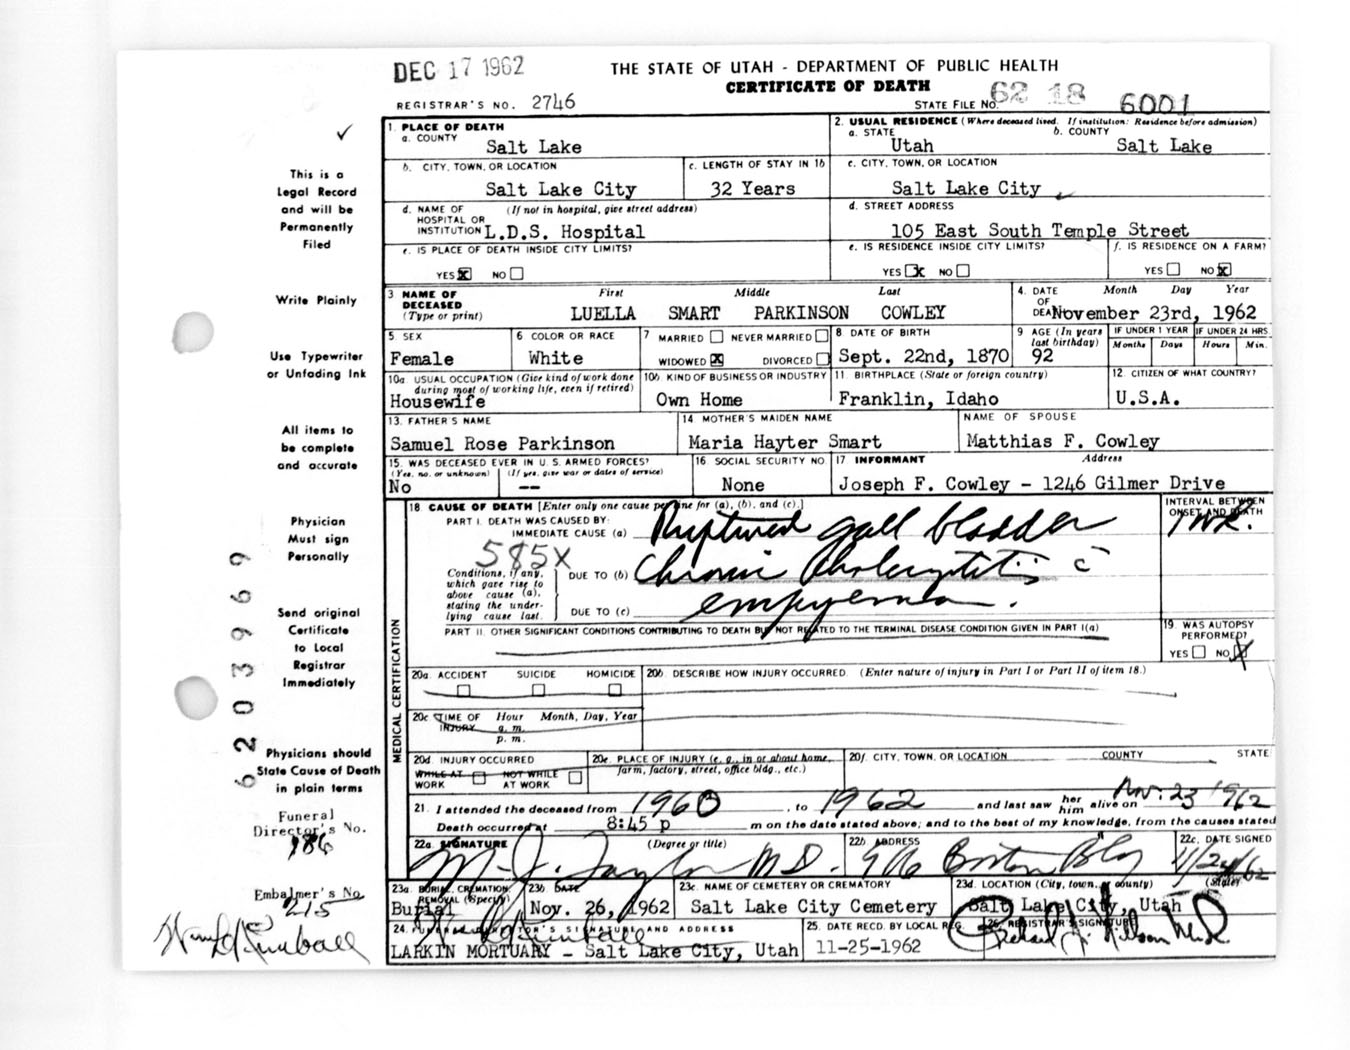 DEC 17 1962
THE STATE OF UTAH - DEPARTMENT OF PUBLIC HEALTH
CERTIFICATE OF DEATH
REGISTRAR'S NO. 2746
STATE FILE NO. 62 18 6001
✓
This is a
Legal Record
and will be
Permanently
Filed
Write Plainly
Use Typewriter
or Unfading Ink
All items to
be complete
and accurate
Physician
Must sign
Personally
Send original
Certificate
to Local
Registrar
Immediately
Physicians should
State Cause of Death
in plain terms
Funeral
Director's No.
186
Embalmer's No.
215
62 203969
1. PLACE OF DEATH
a. COUNTY
Salt Lake
2. USUAL RESIDENCE (Where deceased lived. If institution: Residence before admission)
a. STATE b. COUNTY
Utah Salt Lake
b. CITY, TOWN, OR LOCATION
Salt Lake City
c. LENGTH OF STAY IN 1b
32 Years
c. CITY, TOWN, OR LOCATION
Salt Lake City
d. NAME OF (If not in hospital, give street address)
HOSPITAL OR
INSTITUTION L.D.S. Hospital
d. STREET ADDRESS
105 East South Temple Street
e. IS PLACE OF DEATH INSIDE CITY LIMITS?
YES X NO
e. IS RESIDENCE INSIDE CITY LIMITS?
YES X NO
f. IS RESIDENCE ON A FARM?
YES NO X
3 NAME OF DECEASED
(Type or print)
First Middle Last
LUELLA SMART PARKINSON COWLEY
4. DATE OF DEATH Month Day Year
November 23rd, 1962
5. SEX
Female
6 COLOR OR RACE
White
7 MARRIED NEVER MARRIED
WIDOWED X DIVORCED
8 DATE OF BIRTH
Sept. 22nd, 1870
9 AGE (In years last birthday)
92
IF UNDER 1 YEAR IF UNDER 24 HRS.
Months Days Hours Min.
10a. USUAL OCCUPATION (Give kind of work done
during most of working life, even if retired)
Housewife
10b. KIND OF BUSINESS OR INDUSTRY
Own Home
11. BIRTHPLACE (State or foreign country)
Franklin, Idaho
12. CITIZEN OF WHAT COUNTRY?
U.S.A.
13. FATHER'S NAME
Samuel Rose Parkinson
14 MOTHER'S MAIDEN NAME
Maria Hayter Smart
NAME OF SPOUSE
Matthias F. Cowley
15. WAS DECEASED EVER IN U.S. ARMED FORCES?
(Yes, no, or unknown) (If yes, give war or dates of service)
No --
16. SOCIAL SECURITY NO.
None
17. INFORMANT Address
Joseph F. Cowley - 1246 Gilmer Drive
MEDICAL CERTIFICATION
18 CAUSE OF DEATH [Enter only one cause per line for (a), (b), and (c).]
INTERVAL BETWEEN
ONSET AND DEATH
PART I. DEATH WAS CAUSED BY:
IMMEDIATE CAUSE (a) Ruptured gall bladder
1 wk.
585X
Conditions, if any,
which gave rise to
above cause (a),
stating the under-
lying cause last.
DUE TO (b) Chronic Cholecystitis c̄
DUE TO (c) empyema.
PART II. OTHER SIGNIFICANT CONDITIONS CONTRIBUTING TO DEATH BUT NOT RELATED TO THE TERMINAL DISEASE CONDITION GIVEN IN PART I(a)
19. WAS AUTOPSY
PERFORMED?
YES NO X
20a. ACCIDENT SUICIDE HOMICIDE
20b. DESCRIBE HOW INJURY OCCURRED. (Enter nature of injury in Part I or Part II of item 18.)
20c TIME OF INJURY Hour Month, Day, Year
a. m.
p. m.
20d. INJURY OCCURRED
WHILE AT WORK NOT WHILE AT WORK
20e. PLACE OF INJURY (e. g., in or about home,
farm, factory, street, office bldg., etc.)
20f. CITY, TOWN, OR LOCATION COUNTY STATE
21. I attended the deceased from 1960, to 1962 and last saw her him alive on Nov. 23 1962
Death occurred at 8:45 p m on the date stated above; and to the best of my knowledge, from the causes stated
22a. SIGNATURE (Degree or title)
M. J. Taylor M.D.
22b ADDRESS
906 Boston Bldg
22c. DATE SIGNED
11/24/62
23a. BURIAL, CREMATION, REMOVAL (Specify)
Burial
23b. DATE
Nov. 26, 1962
23c. NAME OF CEMETERY OR CREMATORY
Salt Lake City Cemetery
23d. LOCATION (City, town, or county) (State)
Salt Lake City, Utah
24. FUNERAL DIRECTOR'S SIGNATURE AND ADDRESS
LARKIN MORTUARY - Salt Lake City, Utah
25. DATE RECD. BY LOCAL REG.
11-25-1962
26. REGISTRAR'S SIGNATURE